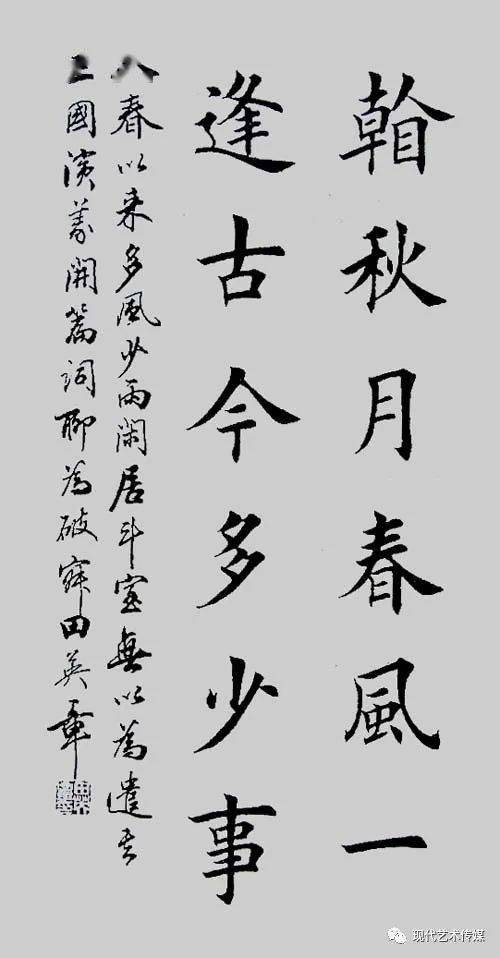 秋月春風一
逢古今多少事
入春以来多風少雨閑居斗室無以為遣書
三國演義開篇詞聊為破寂田英章
现代艺术传媒